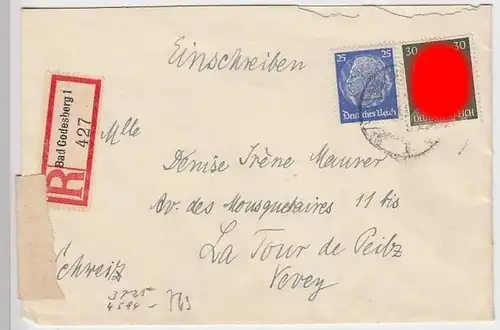 Einschreiben
25 25
Deutsches Reich
30 30
REICH
R
Bad Godesberg 1
427
Mlle
Denise Irène Maurer
Av. des Mousquetaires 11 bis
La Tour de Peilz
Vevey
Schweiz
3725
4594 -